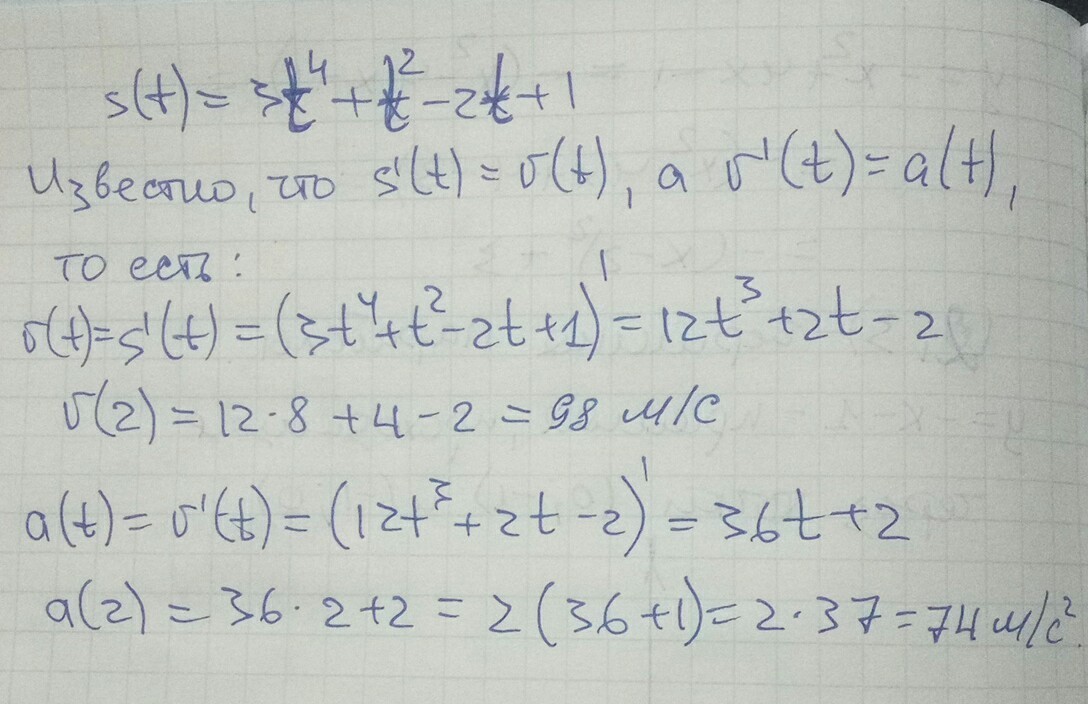 s(t) = 3t⁴ + t² - 2t + 1
Известно, что s'(t) = v(t), а v'(t) = a(t),
то есть:
v(t) = s'(t) = (3t⁴ + t² - 2t + 1)' = 12t³ + 2t - 2
v(2) = 12·8 + 4 - 2 = 98 м/с
a(t) = v'(t) = (12t³ + 2t - 2)' = 36t + 2
a(2) = 36·2 + 2 = 2(36 + 1) = 2·37 = 74 м/с².